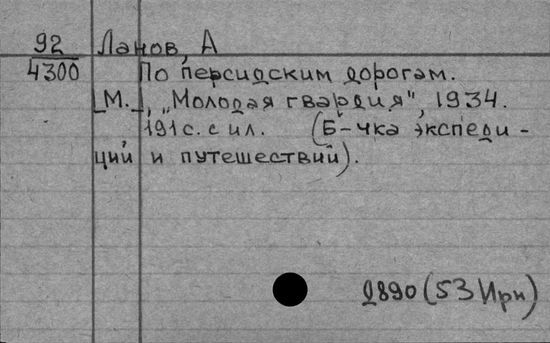 92 Ланов, А
4300 По персидским дорогам.
[М.], „Молодая гвардия", 1934.
191 с. с ил. (Б-чка экспеди-
ций и путешествий).
2890 (53 Ирн)